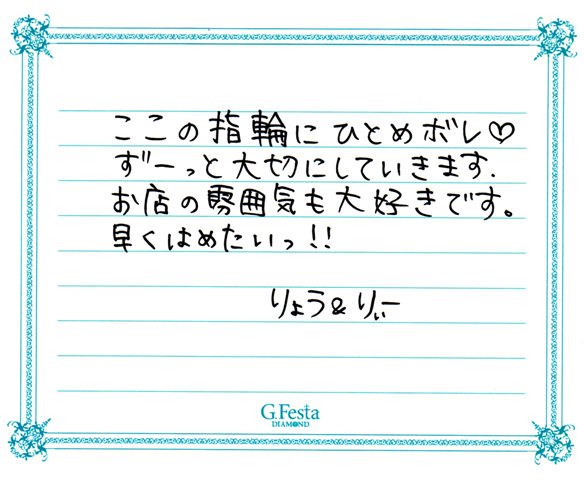 ここの指輪にひとめボレ♡
ずーっと大切にしていきます.
お店の雰囲気も大好きです。
早くはめたいっ!!
りょう&りぃー
G.Festa
DIAMOND